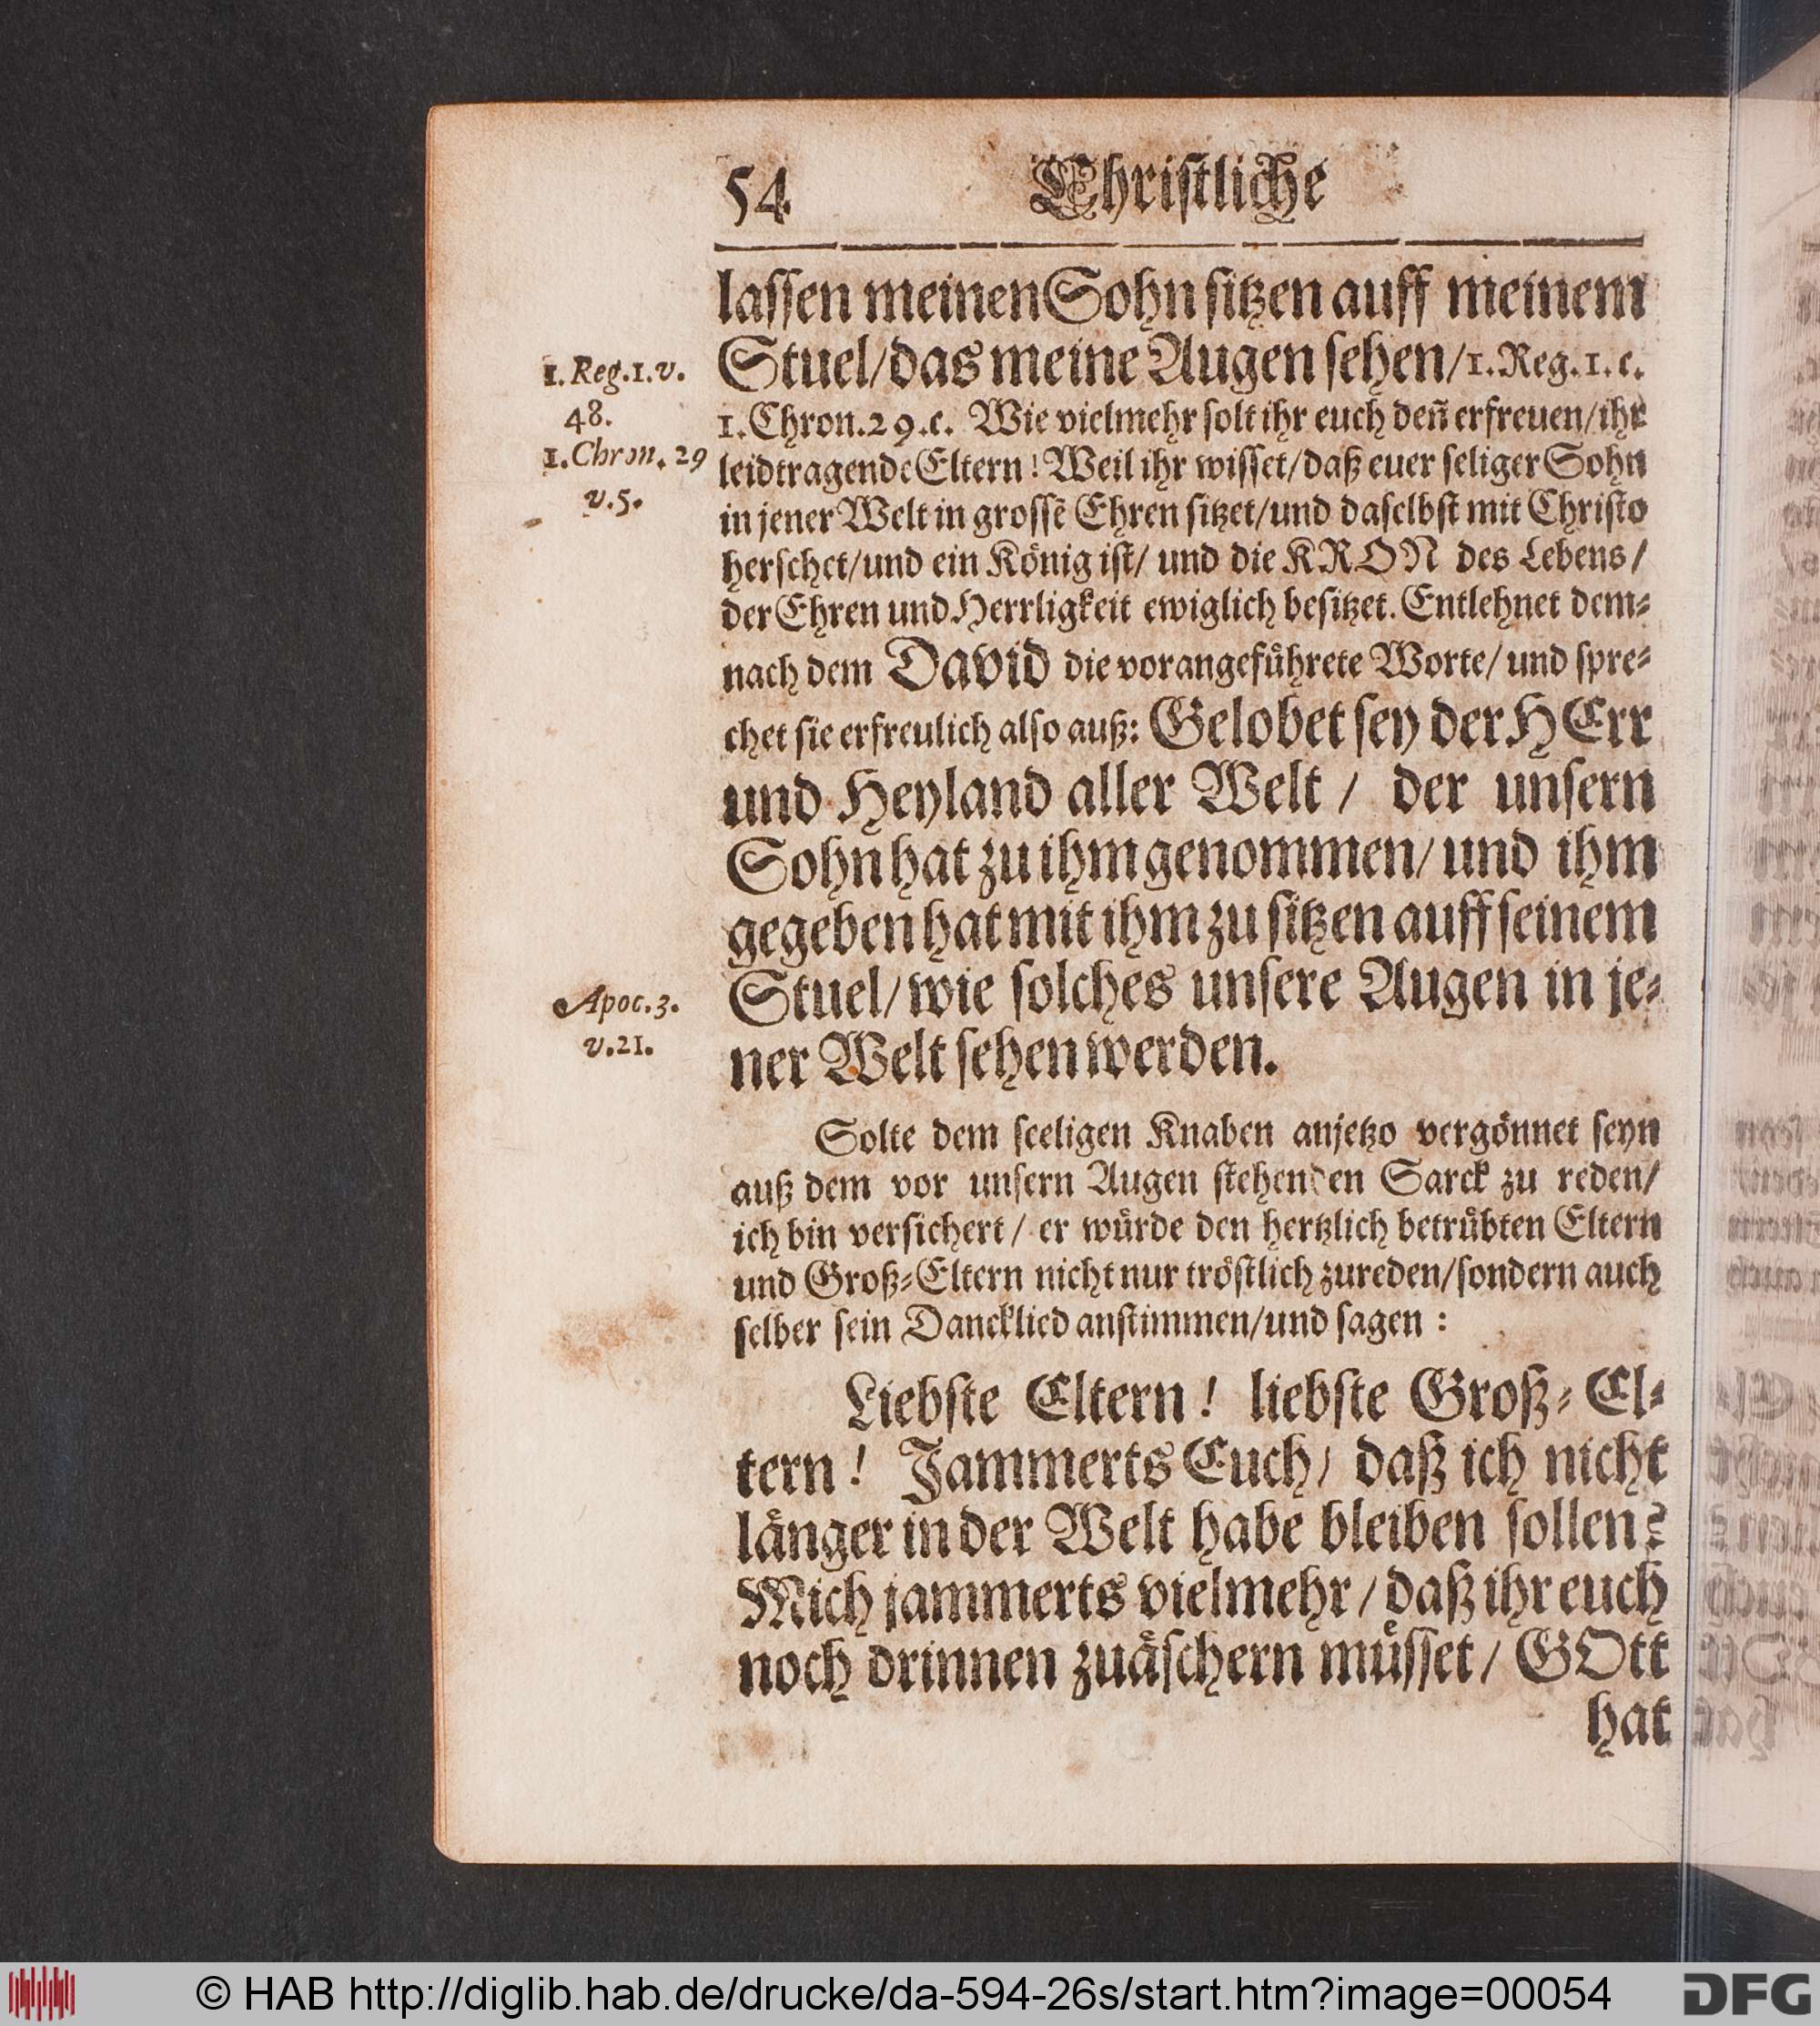 54 Christliche
lassen meinen Sohn sitzen auff meinem
Stuel/das meine Augen sehen/1. Reg. 1. c.
1. Reg. 1. v.
48.
1. Chron. 29
v. 5.
1. Chron. 29. c. Wie vielmehr solt ihr euch deñ erfreuen/ihr
leidtragende Eltern! Weil ihr wisset/daß euer seliger Sohn
in jener Welt in grossẽ Ehren sitzet/und daselbst mit Christo
herschet/und ein König ist/ und die KRON des Lebens/
der Ehren und Herrligkeit ewiglich besitzet. Entlehnet dem-
nach dem David die vorangeführete Worte/ und spre-
chet sie erfreulich also auß: Gelobet sey der HErr
und Heyland aller Welt / der unsern
Sohn hat zu ihm genommen/und ihm
gegeben hat mit ihm zu sitzen auff seinem
Stuel/wie solches unsere Augen in je-
ner Welt sehen werden.
Apoc. 3.
v. 21.
Solte dem seeligen Knaben anjetzo vergönnet seyn
auß dem vor unsern Augen stehenden Sarck zu reden/
ich bin versichert/ er würde den hertzlich betrübten Eltern
und Groß-Eltern nicht nur tröstlich zureden/sondern auch
selber sein Dancklied anstimmen/und sagen:
Liebste Eltern! liebste Groß-El-
tern! Jammerts Euch/ daß ich nicht
länger in der Welt habe bleiben sollen?
Mich jammerts vielmehr/daß ihr euch
noch drinnen zuäschern müsset/ GOtt
hat
© HAB http://diglib.hab.de/drucke/da-594-26s/start.htm?image=00054
DFG